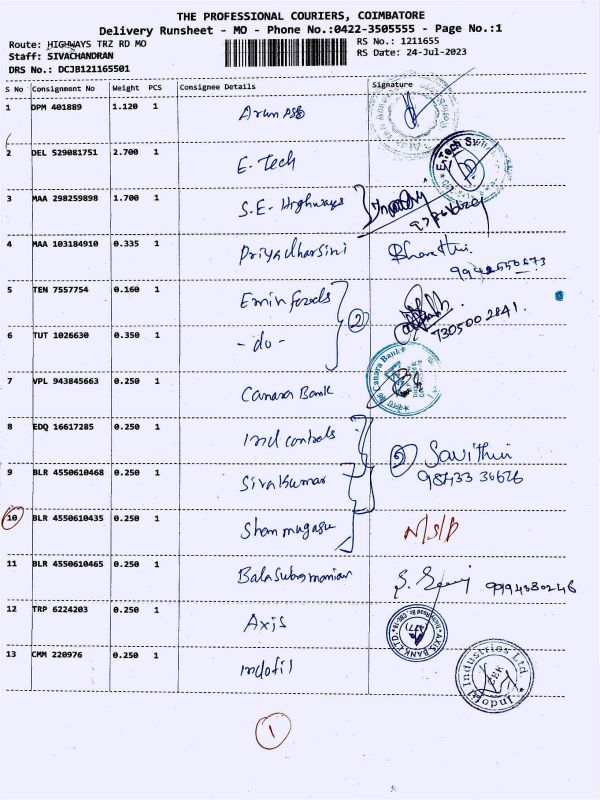 THE PROFESSIONAL COURIERS, COIMBATORE
Delivery Runsheet - MO - Phone No.:0422-3505555 - Page No.:1
Route: HIGHWAYS TRZ RD MO
RS No.: 1211655
Staff: SIVACHANDRAN
RS Date: 24-Jul-2023
DRS No.: DCJB121165501
S No Consignment No Weight PCS Consignee Details Signature
1 DPM 401889 1.120 1 Arun
2 DEL 529081751 2.700 1 E-Tech
3 MAA 298259898 1.700 1 S.E. Highways
4 MAA 103184910 0.335 1 Priyadharsini Bharathi
5 TEN 7557754 0.160 1 Emin foods
7305002841.
6 TUT 1026630 0.350 1 -do- 2
7 VPL 943845663 0.250 1 Canara Bank Canara Bank
8 EDQ 16617285 0.250 1 Ind controls
9 BLR 4550610468 0.250 1 Siva Kumar
10 BLR 4550610435 0.250 1 Shanmugasu N/S/P
11 BLR 4550610465 0.250 1 Balasubramanian
12 TRP 6224203 0.250 1 Axis AXIS BANK LTD
13 CMM 220976 0.250 1 Indofil Indofil Industries Ltd.
1